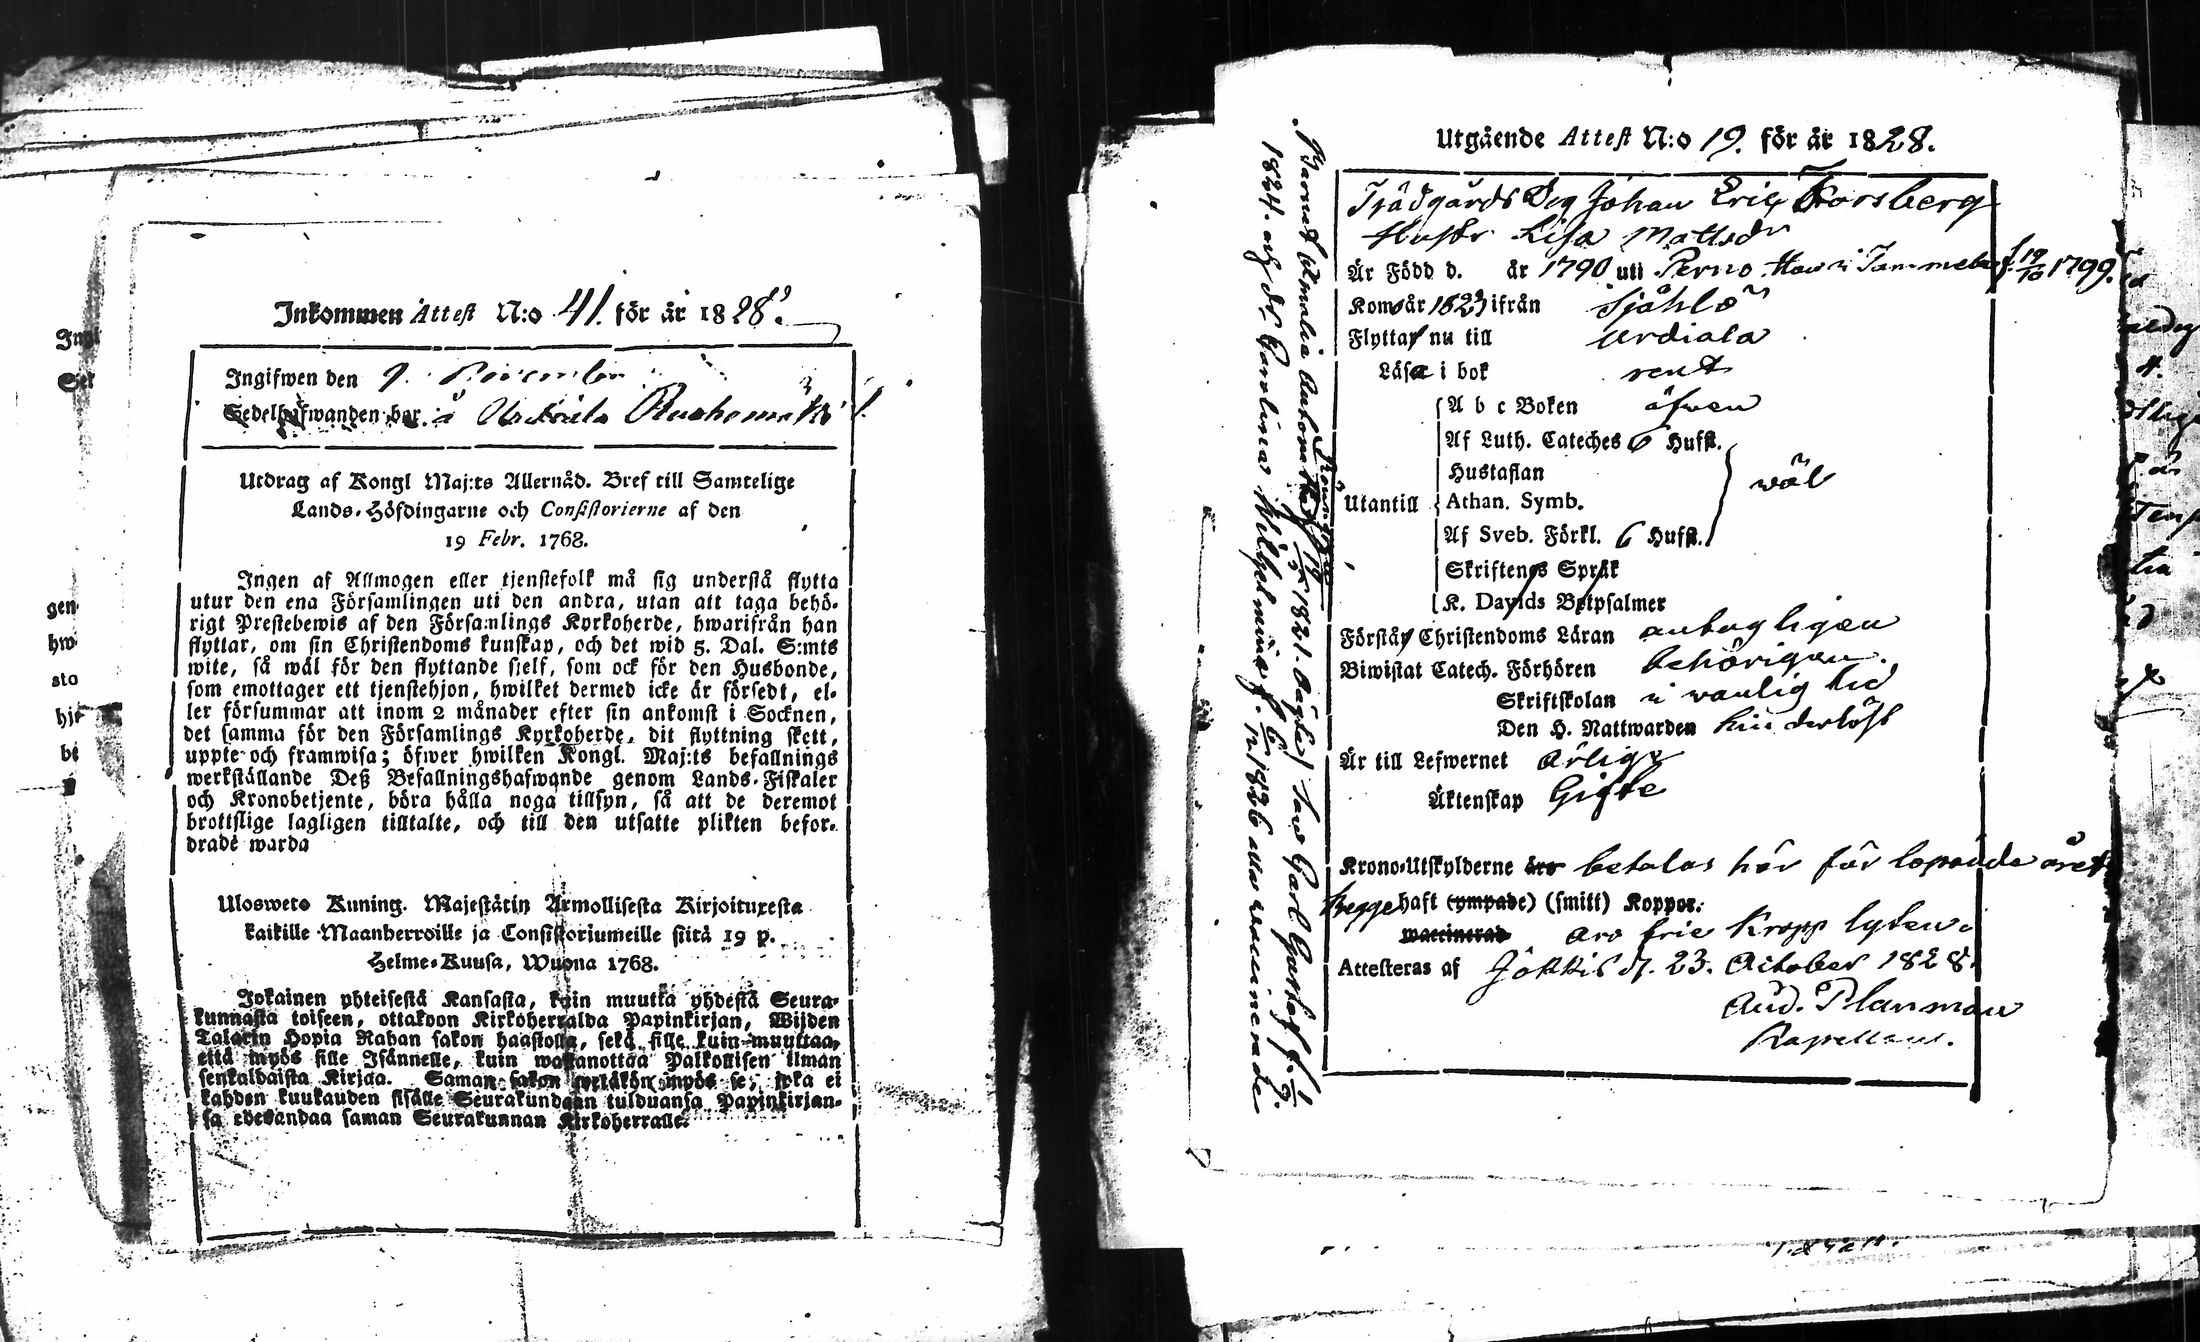 Inkommen Attest N:o 41. för år 1828.
Ingifwen den 9. November
Sedelhafwanden bor å Urdiala
Utdrag af Kongl Maj:ts Allernåd. Bref till Samtelige
Lands-Höfdingarne och Consistorierne af den
19 Febr. 1768.
Ingen af Allmogen eller tjenstefolk må sig understå flytta
utur den ena Församlingen uti den andra, utan att taga behö-
rigt Prestebewis af den Församlings Kyrkoherde, hwarifrån han
flyttar, om sin Christendoms kunskap, och det wid 5. Dal. S:mts
wite, så wäl för den flyttande sielf, som ock för den Husbonde,
som emottager ett tjenstehjon, hwilket dermed icke är försedt, el-
ler försummar att inom 2 månader efter sin ankomst i Socknen,
det samma för den Församlings Kyrkoherde, dit flyttning skett,
uppte och framwisa; öfwer hwilken Kongl. Maj:ts befallnings
werkställande Deß Befallningshafwande genom Lands-Fiskaler
och Kronobetjente, böra hålla noga tillsyn, så att de deremot
brottslige lagligen tilltalte, och till den utsatte plikten befor-
drade warda
Ulosweto Kuning. Majestätin Armollisesta Kirjoituxesta
kaikille Maanherroille ja Consistoriumeille siitä 19 p.
Helme-Kuusa, Wuona 1768.
Jokainen yhteisestä Kansasta, kuin muutta yhdestä Seura-
kunnasta toiseen, ottakoon Kirkoherralda Papinkirjan, Wijden
Talarin Hopia Rahan sakon haastolla, sekä sille kuin muuttaa,
että myös sille Isännelle, kuin wastanottaa Palkollisen ilman
senkaldaista Kirjaa. Saman sakon myös se, joka ei
kahden kuukauden sisälle Seurakundaan tulduansa Papinkirjan-
sa edesandaa saman Seurakunnan Kirkoherralle.
Utgående Attest N:o 19. för år 1828.
Trädgårds Dg Johan Eric Forsberg
Hustr Lisa Mattsdr
Är Född d. år 1790 uti Perno Hon i Tammela f. 19/10 1799.
Kom år 1823 ifrån Sjählö
Flytta nu till Urdiala
Läsa i bok rent
A b c Boken äfwen
Af Luth. Cateches 6 Hufst.
Hustaflan
Utantill Athan. Symb. wäl
Af Sveb. Förkl. 6 Hufst.
Skriftenes Språk
K. Davids Botpsalmer
Förstå Christendoms Läran antagligen
Biwistat Catech. Förhören behörigen
Skriftskolan i wanlig tid
Den H. Nattwarden hinderlöst
Är till Lefwernet ärlige
Äktenskap Gifte
Krono-Utskylderne äro betalas här för löpande året
Begge haft (ympade) (smitt) Koppor.
waccinerad äro frie
Attesteras af Jokkis d. 23. October 1828.
Aud. Planman
Kapellan.
Barnet Amalia 1821.
1824. och dr Carolina Wilhelmina f. 6/12 1826 alla vaccinerade